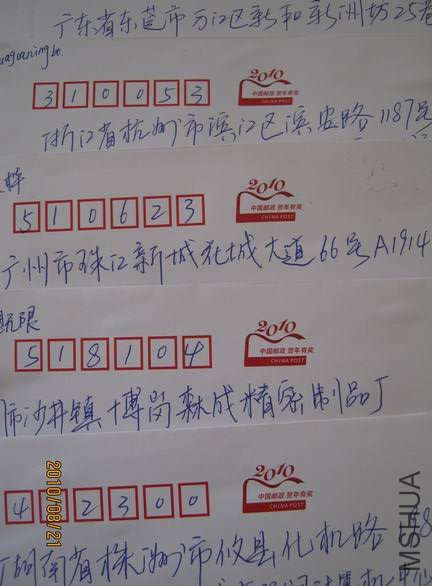 广东省东莞市万江区新和新洲坊25巷
310053
2010
中国邮政 贺年有奖
CHINA POST
浙江省杭州市滨江区滨安路1187号
510623
2010
中国邮政 贺年有奖
CHINA POST
广州市珠江新城花城大道66号A1914
无限
518104
2010
中国邮政 贺年有奖
CHINA POST
市沙井镇博岗森成精密制品厂
412300
2010
中国邮政 贺年有奖
CHINA POST
湖南省株洲市攸县化机路
2010/08/21
MSHUA